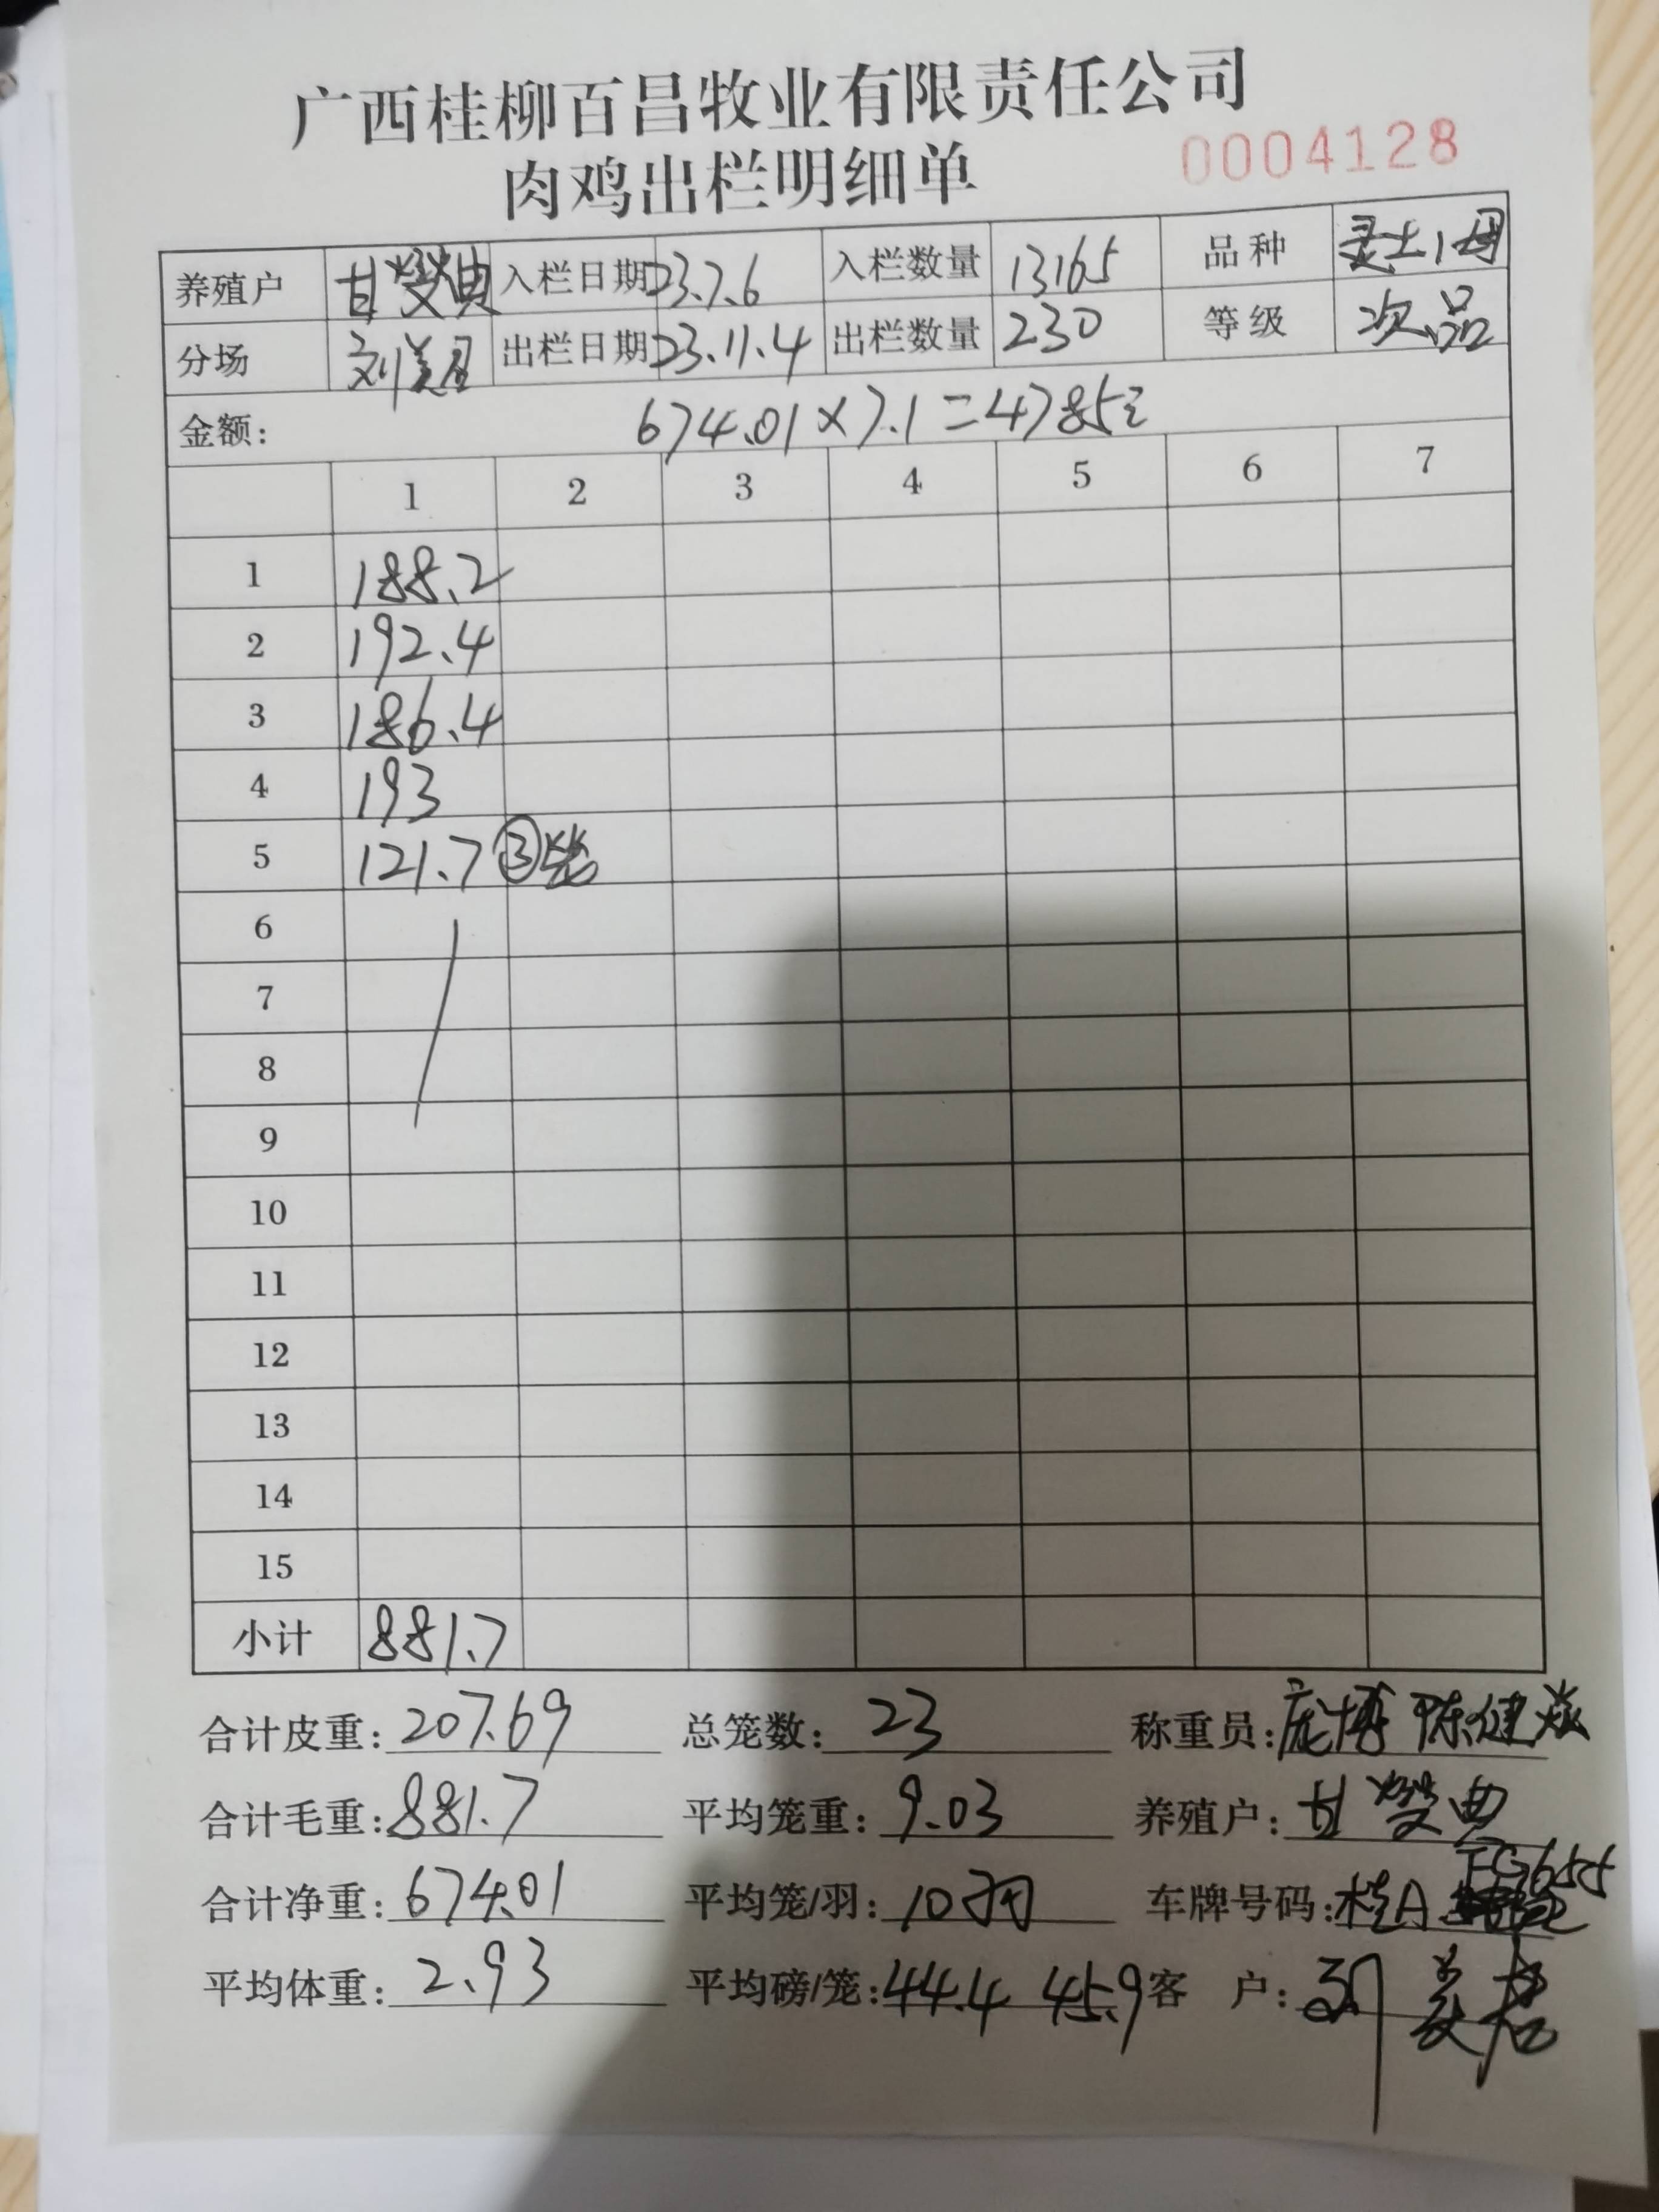 广西桂柳百昌牧业有限责任公司
肉鸡出栏明细单
0004128
养殖户 甘燮典 入栏日期 23.7.6 入栏数量 13165 品种 灵土1母
分场 出栏日期 23.11.4 出栏数量 230 等级 次品
金额: 674.01×7.1=4785元
1 2 3 4 5 6 7
1 188.2
2 192.4
3 186.4
4 193
5 121.7 ③笼
6
7
8
9
10
11
12
13
14
15
小计 881.7
合计皮重: 207.69 总笼数: 23 称重员: 庞博 陈健
合计毛重: 881.7 平均笼重: 9.03 养殖户: 甘燮典
合计净重: 674.01 平均笼/羽: 10羽 车牌号码: 桂A
平均体重: 2.93 平均磅/笼: 44.4 45.9 客 户: